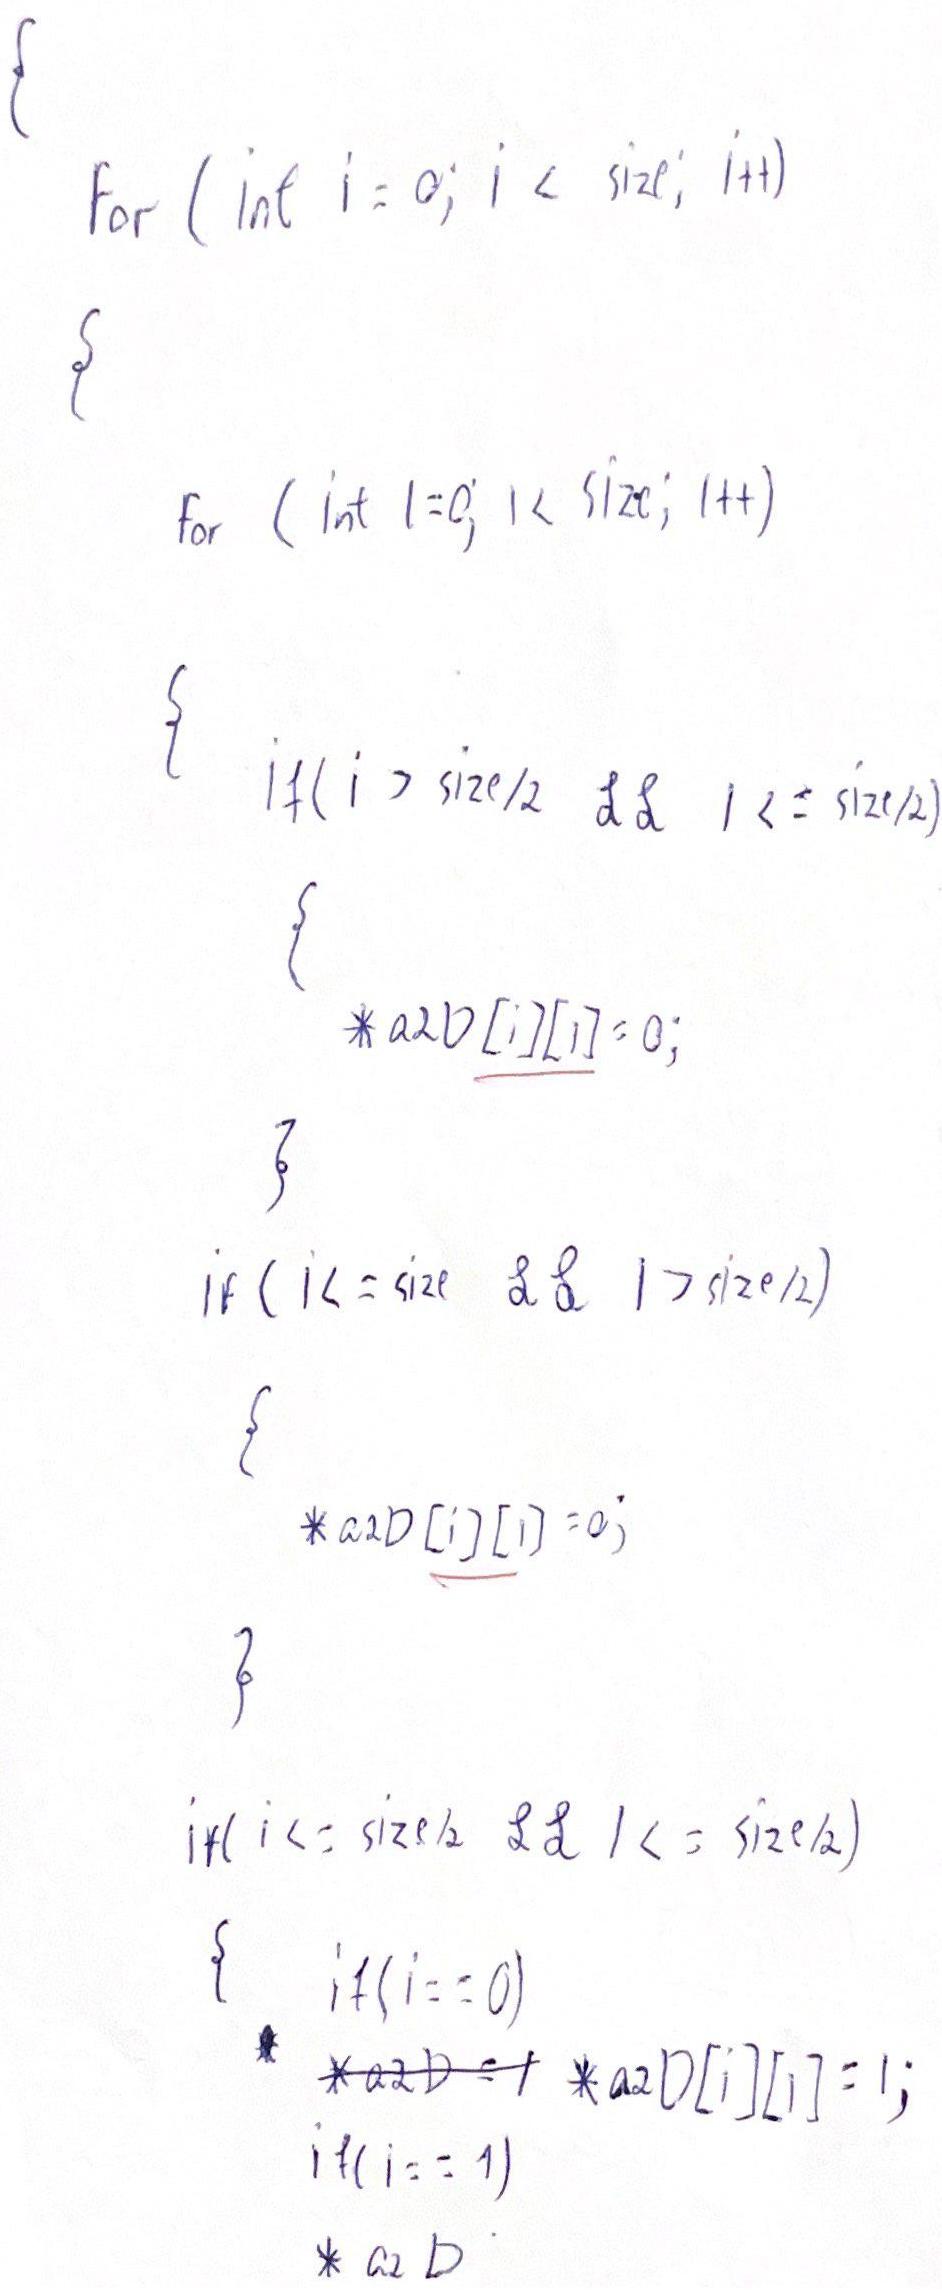 {
For ( int i = 0; i < size; i++)
{
For ( int l=0; l< size; l++)
{
if( i > size/2 && l <= size/2)
{
*a2D[i][l]=0;
}
if ( i<=size && l >size/2)
{
*a2D[i][l] =0;
}
if( i<= size/2 && l<= size/2)
{ if(i==0)
* *a2D = 1 *a2D[i][l]=1;
if(i==1)
*a2D